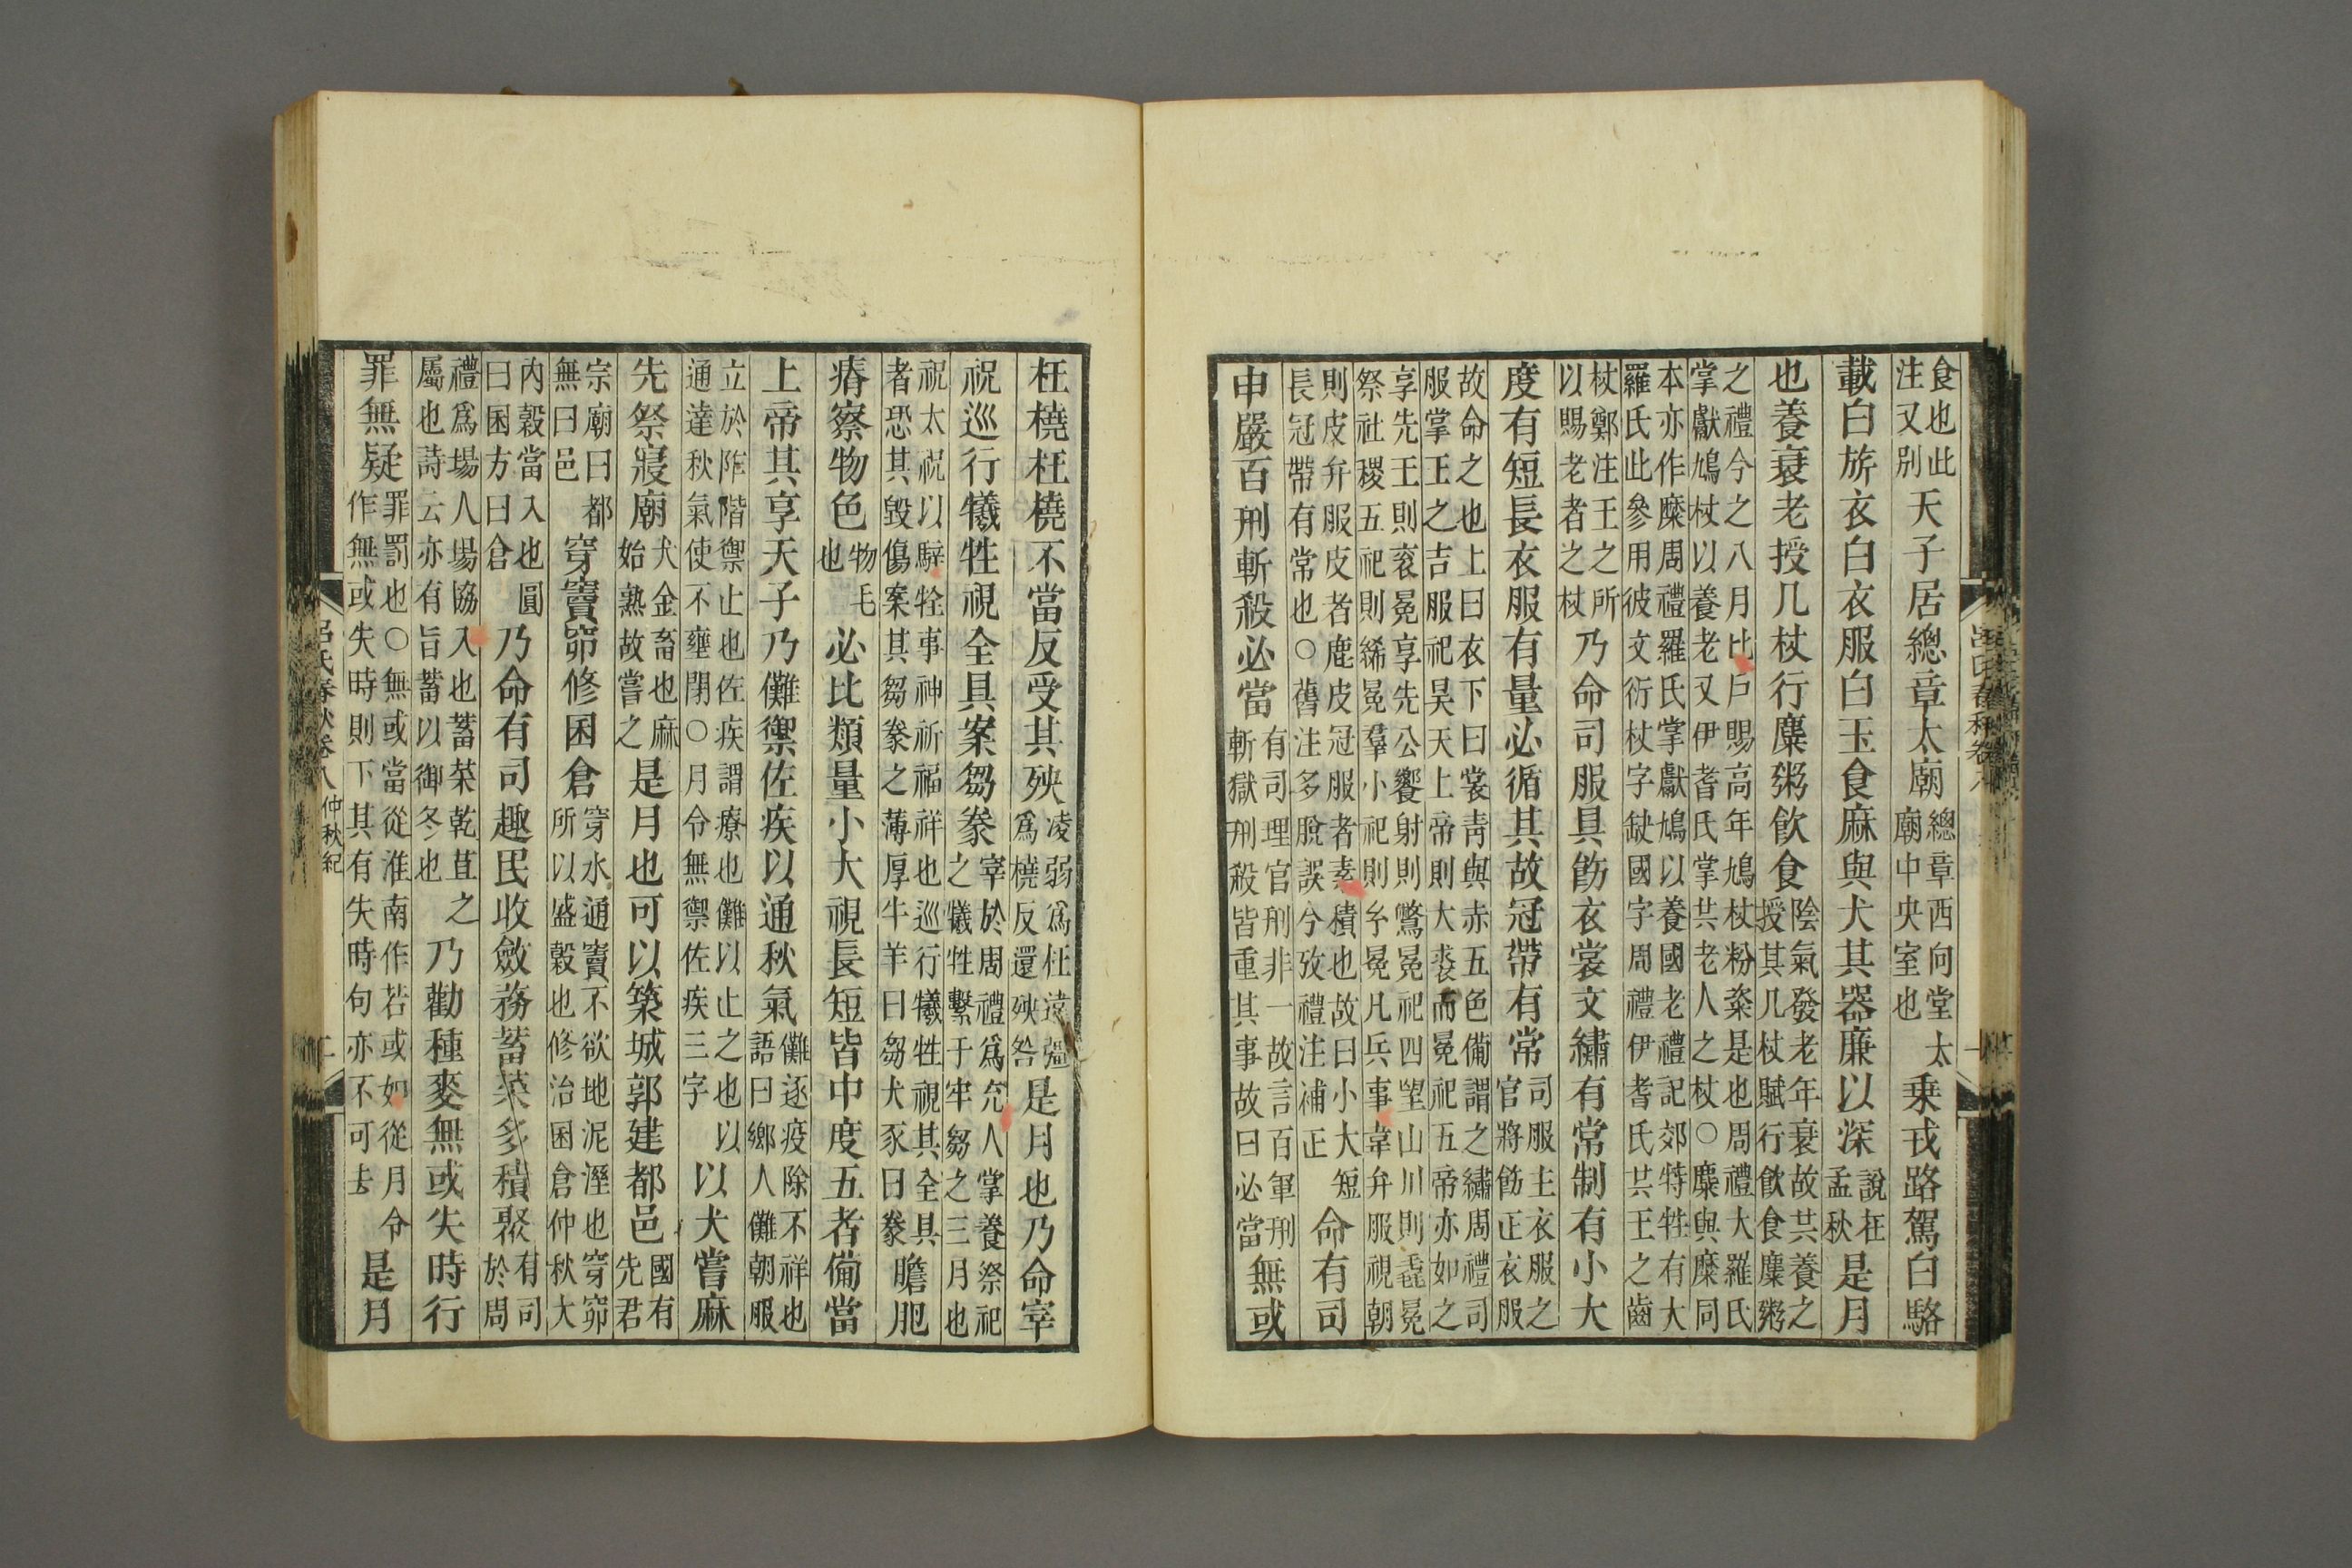 食也此
注又別
天子居總章太廟
總章西向堂太
廟中央室也
乗戎路駕白駱
載白旂衣白衣服白玉食麻與犬其器廉以深
說在
孟秋
是月
也養衰老授几杖行麋粥飲食
陰氣發老年衰故共養之
授其几杖賦行飲食麋粥
之禮今之八月比戶賜高年鳩杖粉粢是也周禮大羅氏
掌獻鳩杖以養老又伊耆氏掌共老人之杖○麋與糜同
本亦作糜周禮羅氏掌獻鳩以養國老禮記郊特牲有大
羅氏此參用彼文衍杖字缺國字周禮伊耆氏共王之齒
杖鄭注王之所
以賜老者之杖
乃命司服具飭衣裳文繡有常制有小大
度有短長衣服有量必循其故冠帶有常
司服主衣服之
官將飭正衣服
故命之也上曰衣下曰裳青與赤五色備謂之繡周禮司
服掌王之吉服祀昊天上帝則大裘而冕祀五帝亦如之
享先王則衮冕享先公饗射則鷩冕祀四望山川則毳冕
祭社稷五祀則絺冕羣小祀則玄冕凡兵事韋弁服視朝
則皮弁服皮者鹿皮冠服者素積也故曰小大短
長冠帶有常也○舊注多脫誤今攷禮注補正
命有司
申嚴百刑斬殺必當
有司理官刑非一故言百軍刑
斬獄刑殺皆重其事故曰必當
無或
枉橈枉橈不當反受其殃
凌弱爲枉違彊
爲橈反還殃咎
是月也乃命宰
祝巡行犧牲視全具案芻豢
宰於周禮爲充人掌養祭祀
之犧牲繫于牢芻之三月也
祝太祝以騂牷事神祈福祥也巡行犧牲視其全具
者恐其毀傷案其芻豢之薄厚牛羊曰芻犬豕曰豢
瞻肥
瘠察物色
物毛
也
必比類量小大視長短皆中度五者備當
上帝其享天子乃儺禦佐疾以通秋氣
儺逐疫除不祥也
語曰鄉人儺朝服
立於阼階禦止也佐疾謂療也儺以止之也以
通達秋氣使不壅閉○月令無禦佐疾三字
以犬嘗麻
先祭寢廟
犬金畜也麻
始熟故嘗之
是月也可以築城郭建都邑
國有
先君
宗廟曰都
無曰邑
穿竇窌修囷倉
穿水通竇不欲地泥溼也穿窌
所以盛穀也修治囷倉仲秋大
內穀當入也圓
曰囷方曰倉
乃命有司趣民收斂務蓄菜多積聚
有司
於周
禮爲場人場協入也蓄菜乾苴之
屬也詩云亦有旨蓄以御冬也
乃勸種麥無或失時行
罪無疑
罪罰也○無或當從淮南作若或如從月令
作無或失時則下其有失時句亦不可去
是月
呂氏春秋卷八
仲秋紀
二